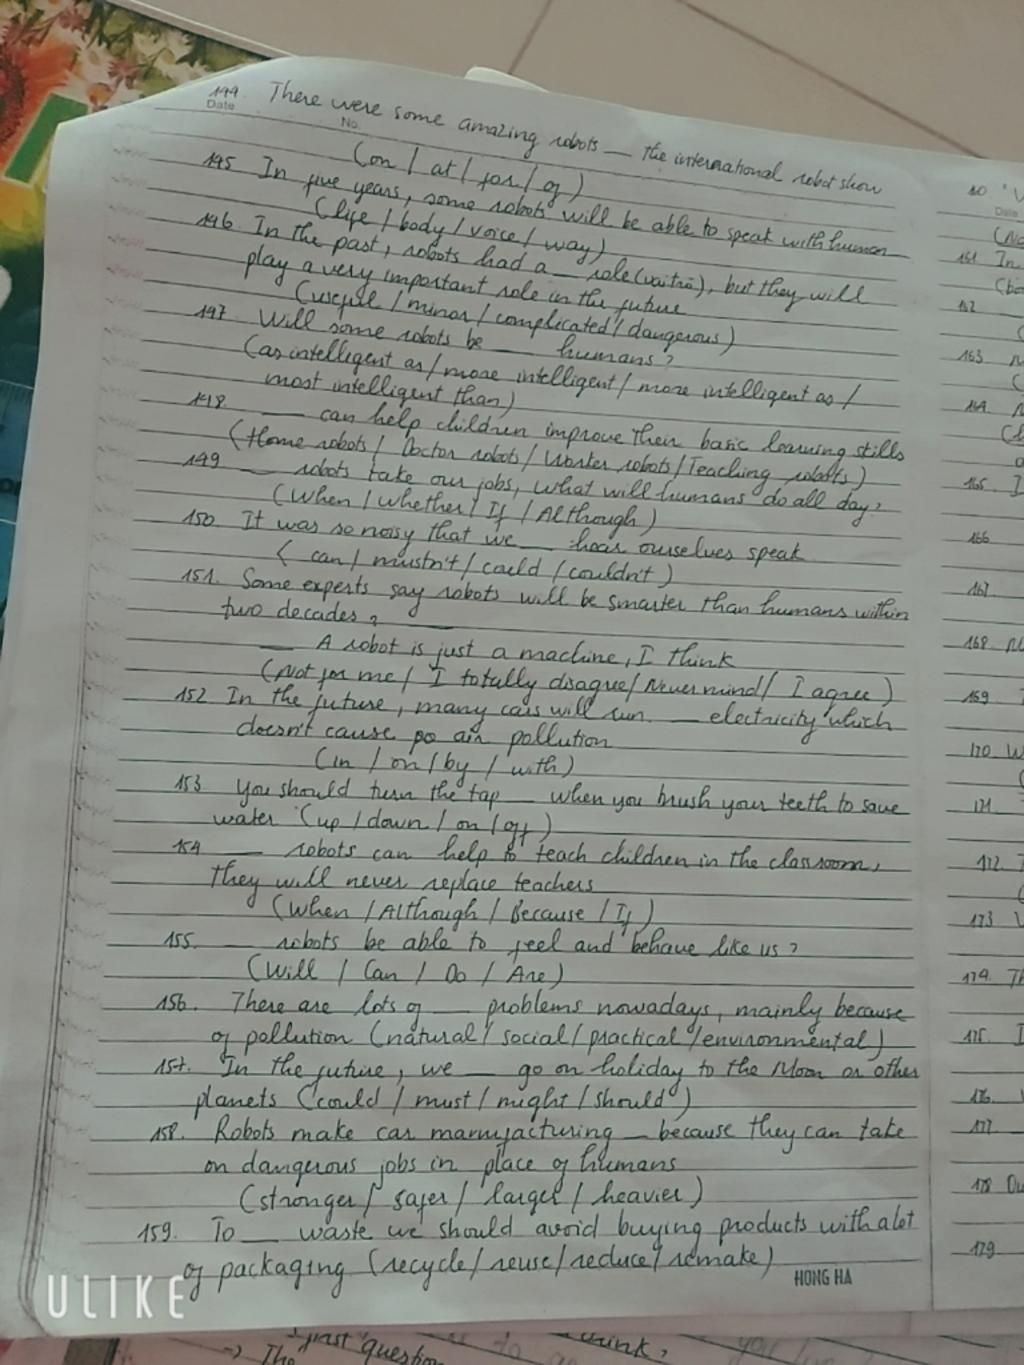 144. There were some amazing robots __ the international robot show
Date
No.
(on / at / for / of)
145 In five years, some robots will be able to speak with human __
(life / body / voice / way)
146. In the past, robots had a __ role (vai trò), but they will
play a very important role in the future
(useful / minor / complicated / dangerous)
147. Will some robots be __ humans?
(as intelligent as / more intelligent / more intelligent as /
most intelligent than)
148. __ can help children improve their basic learning skills
(Home robots / Doctor robots / Worker robots / Teaching robots)
149 __ robots take our jobs, what will humans do all day?
(When / whether / If / Although)
150. It was so noisy that we __ hear ourselves speak
( can / mustn't / could / couldn't )
151. Some experts say robots will be smarter than humans within
two decades? __
__ A robot is just a machine, I think
(Not for me / I totally disagree / Never mind / I agree)
152 In the future, many cars will run __ electricity which
doesn't cause po air pollution
(in / on / by / with)
153 You should turn the tap __ when you brush your teeth to save
water (up / down / on / off)
154 __ robots can help to teach children in the classroom,
they will never replace teachers
(When / Although / Because / If)
155. __ robots be able to feel and behave like us?
(Will / Can / Do / Are)
156. There are lots of __ problems nowadays, mainly because
of pollution (natural / social / practical / environmental)
157. In the future, we __ go on holiday to the Moon or other
planets (could / must / might / should)
158. Robots make car manufacturing __ because they can take
on dangerous jobs in place of humans
(stronger / safer / larger / heavier)
159. To __ waste we should avoid buying products with a lot
of packaging (recycle / reuse / reduce / remake)
HONG HA
ULIKE
161 In
162
163
164
165. I
166
167
168
169
170 W
171
172.
173
174. Th
175. I
176.
177
178
179
past question
think,
→ The